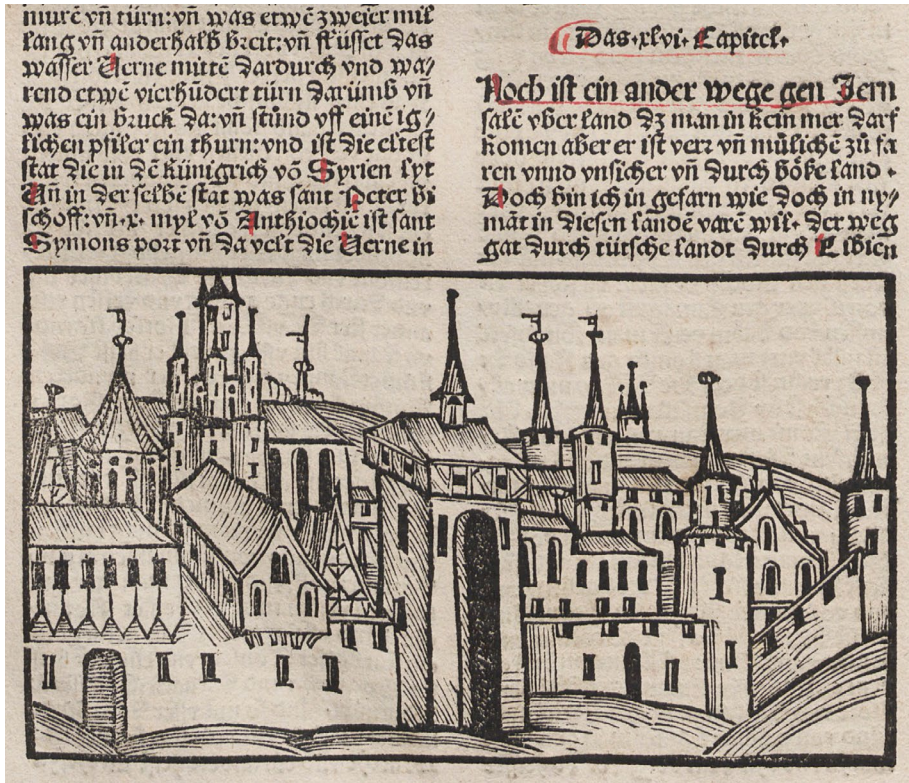 murē vñ türn: vñ was etwē zweier mil
lang vñ anderhalb breit: vñ flüsset das
wasser Verne mittē dardurch vnd wa/
rend etwē vierhūdert türn darümb vñ
was ein bruck da: vñ stūnd vff einē ig/
lichen pfiler ein thurn: vnd ist die eltest
stat die in dē künigrich vō Syrien lyt
Uñ in der selbē stat was sant Peter bi
schoff: vñ .x. myl vō Anthiochiē ist sant
Symons port vñ da velt die Verne in
Das .xlvi. Capitel.
Noch ist ein ander wege gen Jern
salē vber land dz man in kein mer darf
komen aber er ist verr vñ mülichē zū fa
ren vnnd vnsicher vñ durch böße land.
Doch bin ich in gefarn wie doch in ny/
māt in diesen landē varē wil. der weg
gat durch tütsche landt durch Libien